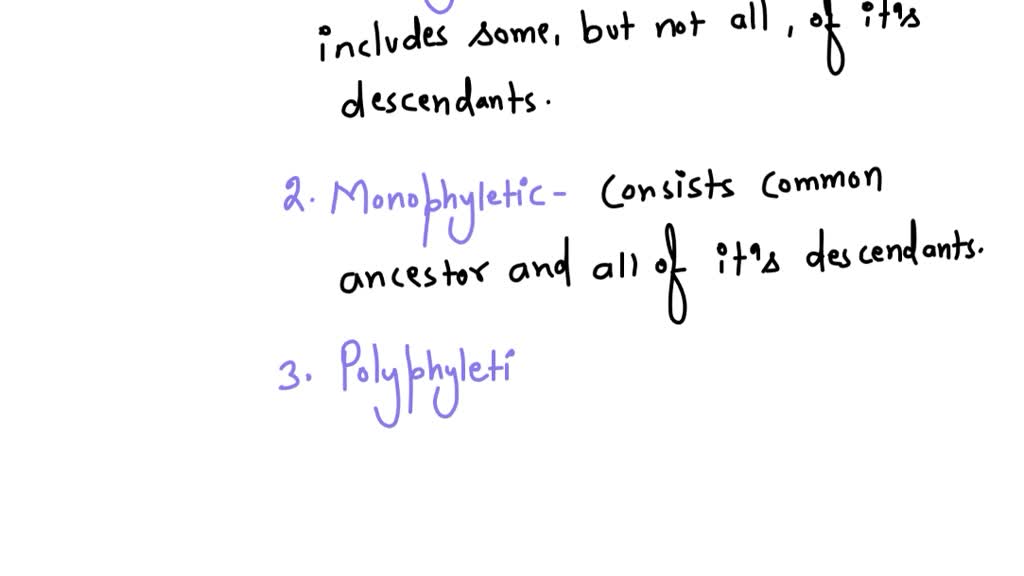 includes some, but not all, of it's
descendants.
2. Monophyletic - Consists common
ancestor and all of it's descendants.
3. Polyphyleti